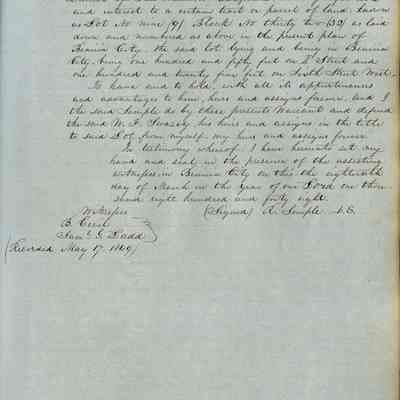 and interest to a certain tract or parcel of land known
as Lot No nine (9) Block No thirty two (32) as laid
down and numbered as above in the present plan of
Benicia City. The said lot lying and being in Benicia
City, being one hundred and fifty feet on Street and
one hundred and twenty five feet on Street West.
To have and to hold, with all its appurtenances
and advantages to him, heirs and assigns forever. And I
the said Semple do by these presents Warrant and defend
the said M. heirs and assigns in the title
to said Lot from myself, my heirs and assigns forever.
In testimony whereof I have hereunto set my
hand and seal in the presence of the assisting
witnesses in Benicia City on this the eighteenth
day of March in the year of our Lord one thou-
sand eight hundred and forty eight.
Witnesses (Signed) R. Semple L.S.
B.
Saml. G. Ladd
(Recorded May 17. 1849)